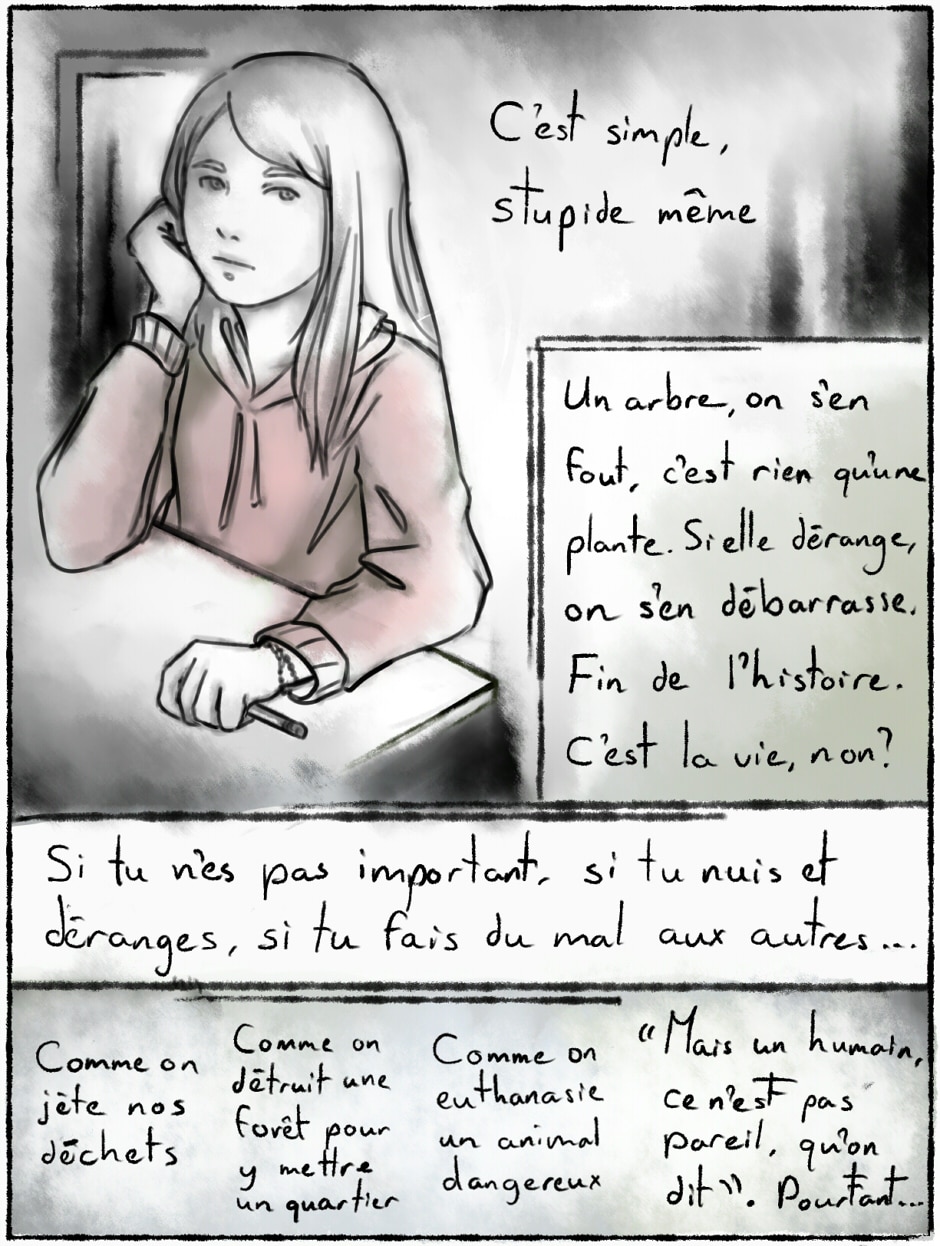 C'est simple,
stupide même
Un arbre, on s'en
fout, c'est rien qu'une
plante. Si elle dérange,
on s'en débarrasse.
Fin de l'histoire.
C'est la vie, non?
Si tu n'es pas important, si tu nuis et
déranges, si tu fais du mal aux autres...
Comme on
jète nos
déchets
Comme on
détruit une
forêt pour
y mettre
un quartier
Comme on
euthanasie
un animal
dangereux
"Mais un humain,
ce n'est pas
pareil, qu'on
dit". Pourtant...